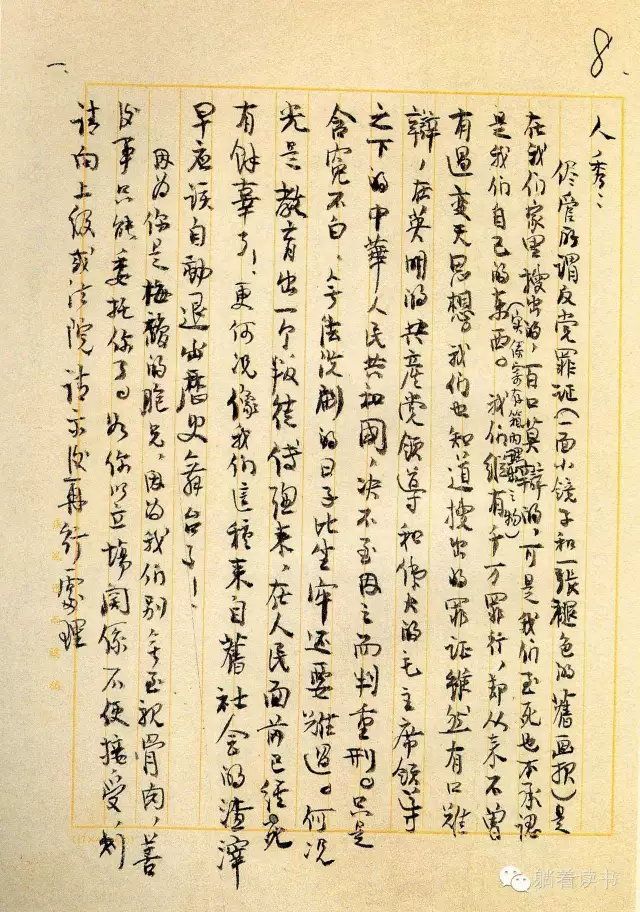 8.
一、
人秀：
侭管所谓反党罪证(一面小镜子和一张褪色的舊画报)是
在我们家里搜出的，百口莫辯的，可是我们至死也不承认
(实係寄存箱内理
之物)
是我们自己的东西。我们縱有千万罪行，却从来不曾
有过变天思想。我们也知道搜出的罪证虽然有口难
辯，在英明的共產党领导和偉大的毛主席领导
之下的中華人民共和國，决不至因之而判重刑。只是
含冤不白，无法洗刷的日子比坐牢还要难过。何况
光是教育出一个叛徒傅聰来，在人民面前已经死
有餘辜了，更何况像我们這種来自舊社会的渣滓
早应该自動退出歷史舞台了！
因为你是梅馥的胞兄，因为我们别无至親骨肉，善
後事只能委托你了。如你以立埸関係不便接受，则
请向上级或法院请示後再行處理
躺着读书